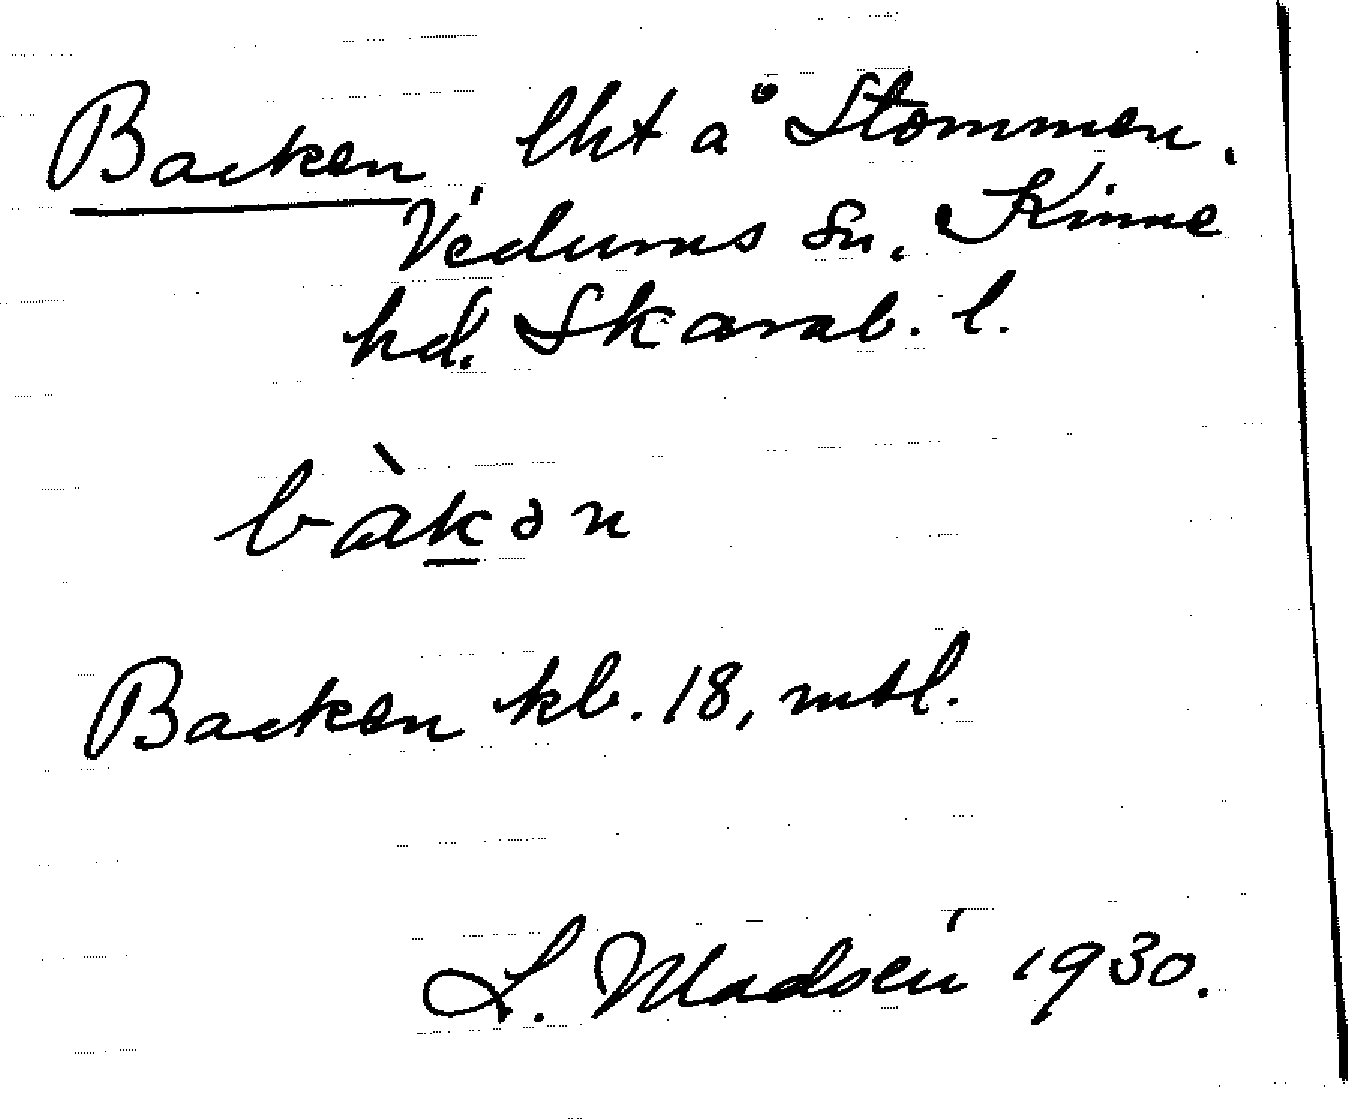 Backen, lht å Stommen,
Vedums sn, Kinne
hd. Skarab. l.
bàkən
Backen kb. 18, mtl.
L. Madsén 1930.